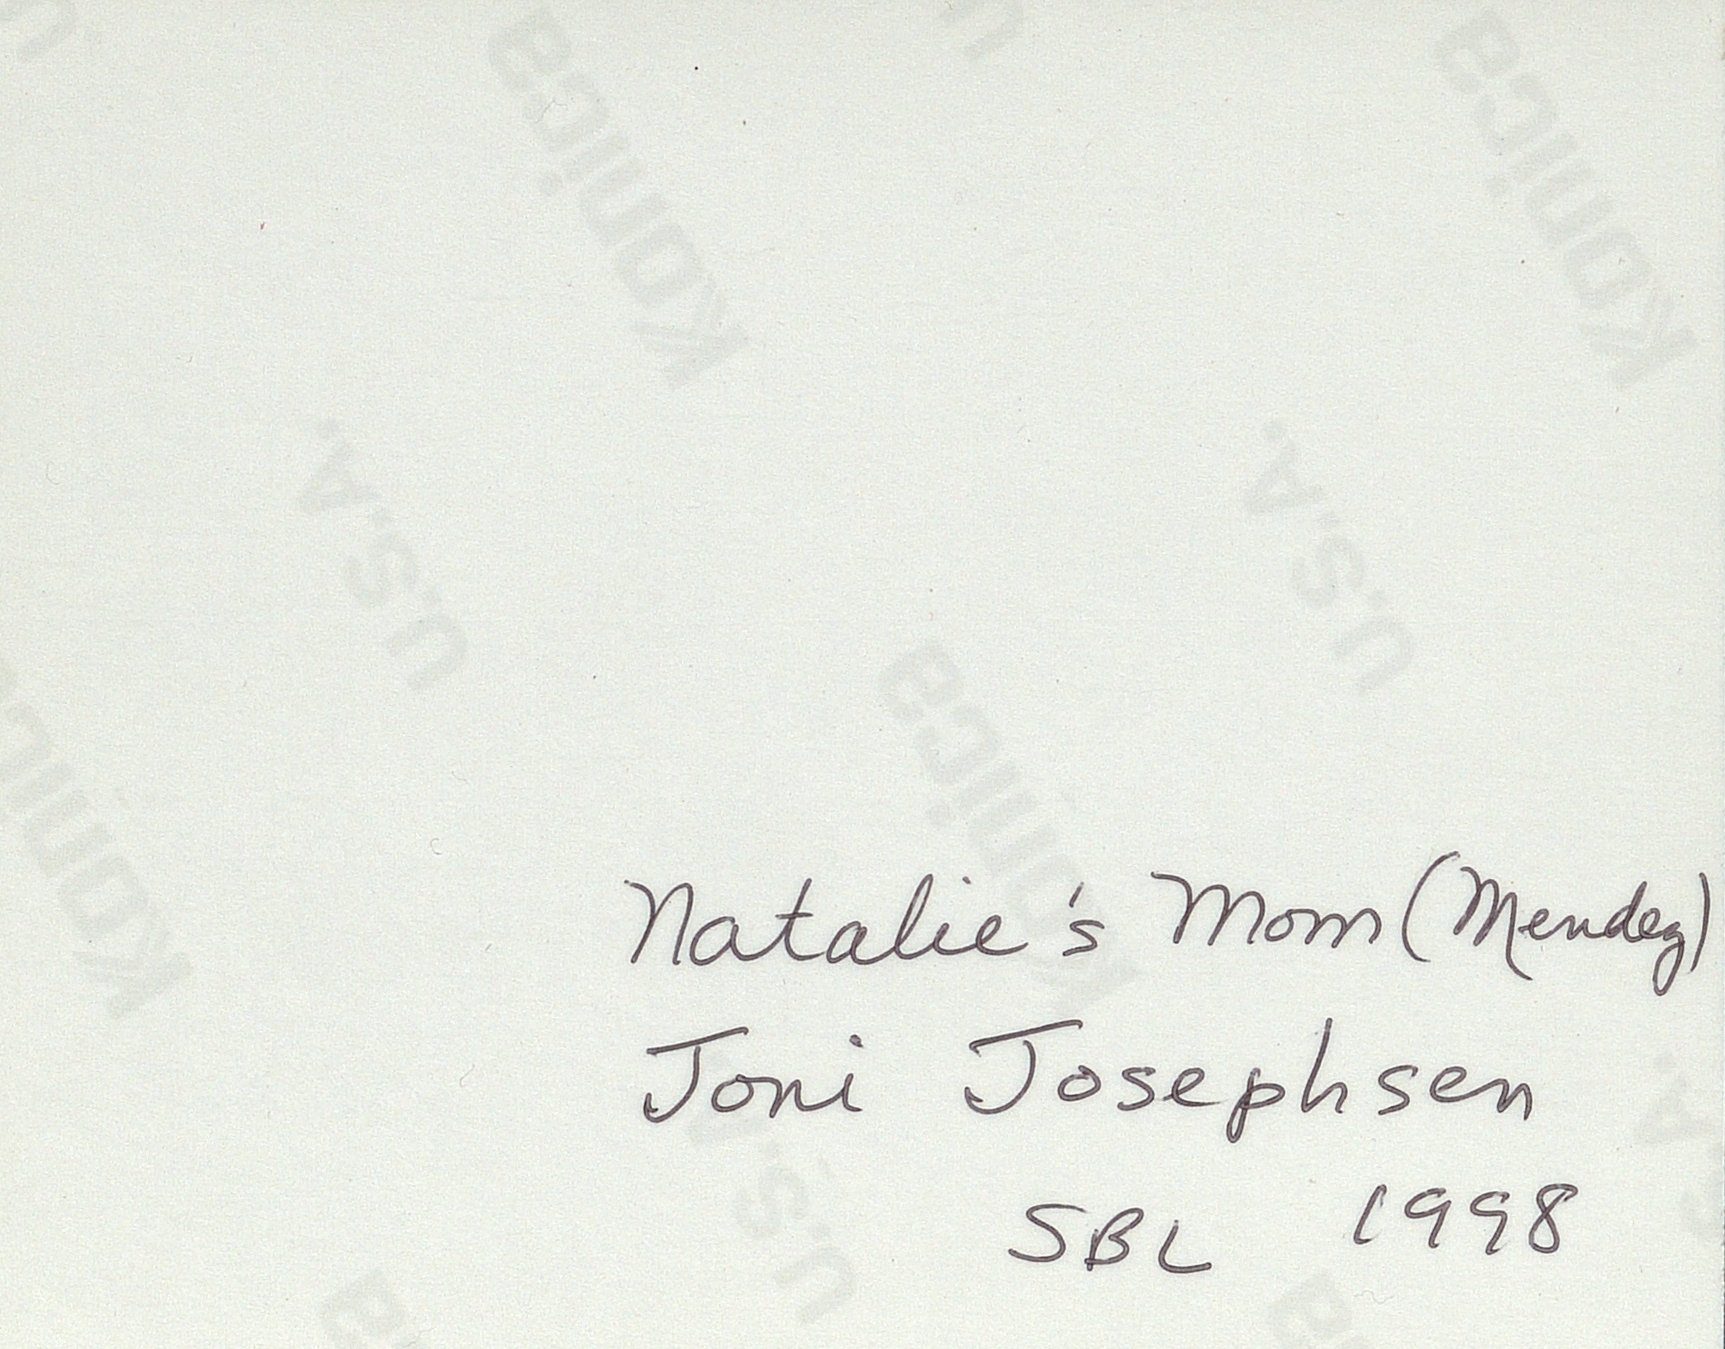 Konica
Konica
U.S.A.
U.S.A.
Konica
Konica
Natalie's Mom (Mendez)
Joni Josephsen
U.S.A.
SBL 1998